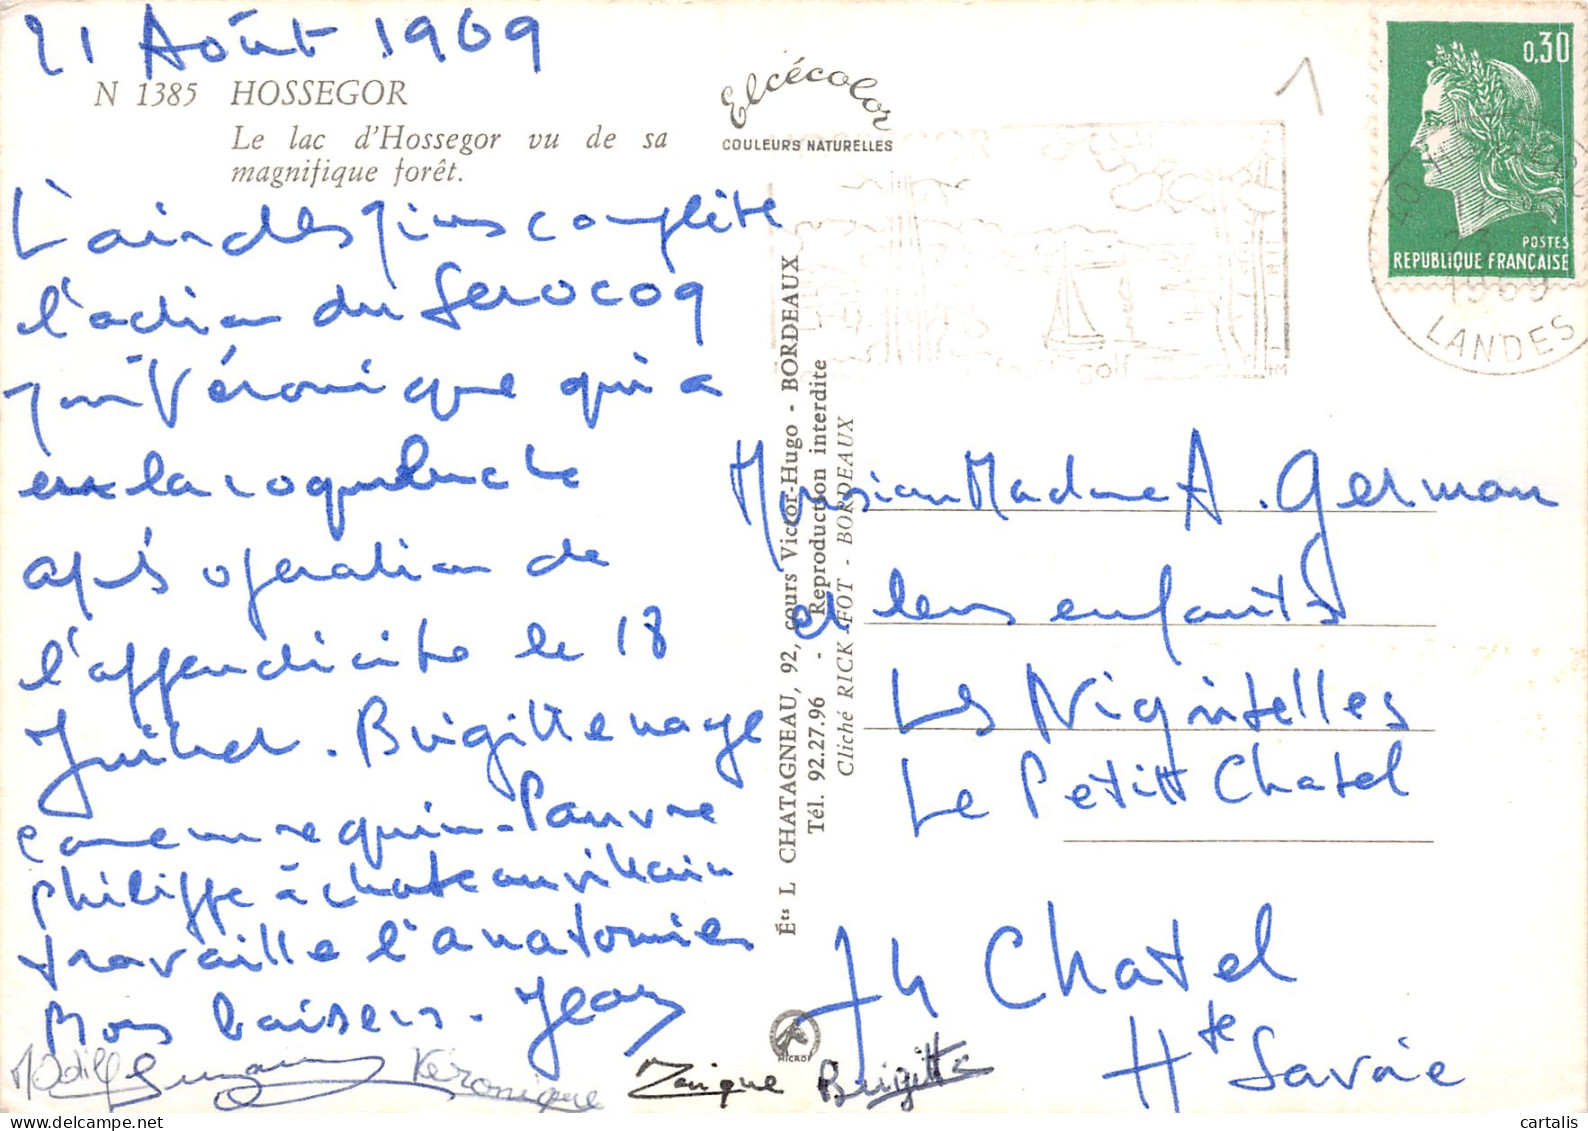 21 Août 1969
N 1385 HOSSEGOR
Le lac d'Hossegor vu de sa
magnifique forêt.
Elcécolor
COULEURS NATURELLES
HOSSEGOR
golf
0,30
POSTES
REPUBLIQUE FRANÇAISE
23
1969
LANDES
L'air des pins complète
l'action du
Véronique qui a
eu la coqueluche
après opération de
l'appendicite le 18
Juillet. Brigitte nage
comme un requin. Pauvre
Philippe à chateauvillain
travaille l'anatomie
Bons baisers. Jean
Odile Germain Véronique Monique Brigitte
Éts L CHATAGNEAU, 92, cours Victor-Hugo - BORDEAUX
Tél. 92.27.96 - Reproduction interdite
Cliché RICK FOT - BORDEAUX
MICRO
Monsieur Madame A. German
et leurs enfants
Les Nigritelles
Le Petit Chatel
74 Chatel
Hte Savoie
cartalis